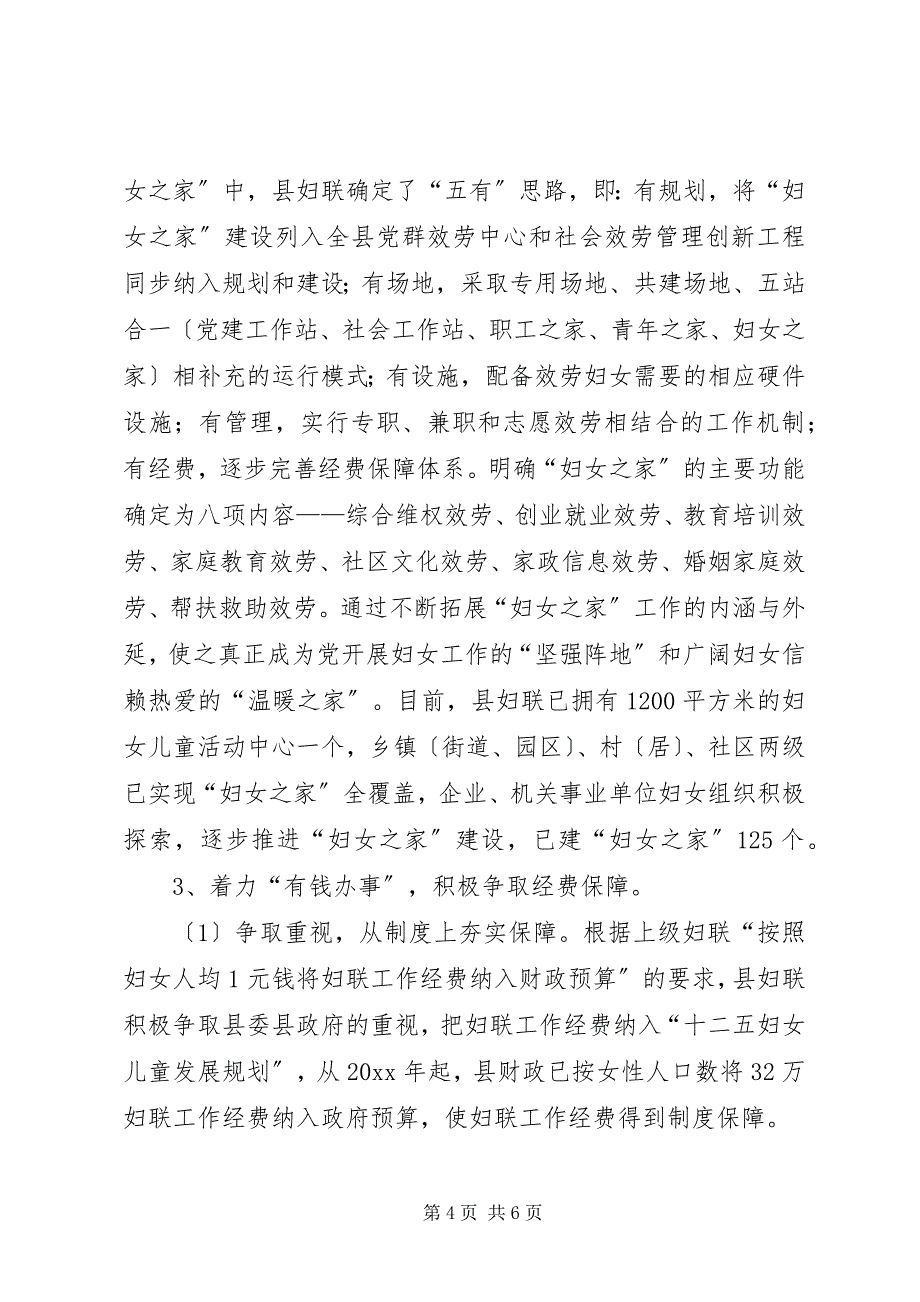 女之家〞中，县妇联确定了“五有〞思路，即：有规划，将“妇
女之家〞建设列入全县党群效劳中心和社会效劳管理创新工程
同步纳入规划和建设；有场地，采取专用场地、共建场地、五站
合一〔党建工作站、社会工作站、职工之家、青年之家、妇女之
家〕相补充的运行模式；有设施，配备效劳妇女需要的相应硬件
设施；有管理，实行专职、兼职和志愿效劳相结合的工作机制；
有经费，逐步完善经费保障体系。明确“妇女之家〞的主要功能
确定为八项内容——综合维权效劳、创业就业效劳、教育培训效
劳、家庭教育效劳、社区文化效劳、家政信息效劳、婚姻家庭效
劳、帮扶救助效劳。通过不断拓展“妇女之家〞工作的内涵与外
延，使之真正成为党开展妇女工作的“坚强阵地〞和广阔妇女信
赖热爱的“温暖之家〞。目前，县妇联已拥有 1200 平方米的妇
女儿童活动中心一个，乡镇〔街道、园区〕、村〔居〕、社区两级
已实现“妇女之家〞全覆盖，企业、机关事业单位妇女组织积极
探索，逐步推进“妇女之家〞建设，已建“妇女之家〞125 个。
3、着力“有钱办事〞，积极争取经费保障。
〔1〕争取重视，从制度上夯实保障。根据上级妇联“按照
妇女人均 1 元钱将妇联工作经费纳入财政预算〞的要求，县妇联
积极争取县委县政府的重视，把妇联工作经费纳入“十二五妇女
儿童发展规划〞，从 20xx 年起，县财政已按女性人口数将 32 万
妇联工作经费纳入政府预算，使妇联工作经费得到制度保障。
第 4 页 共 6 页